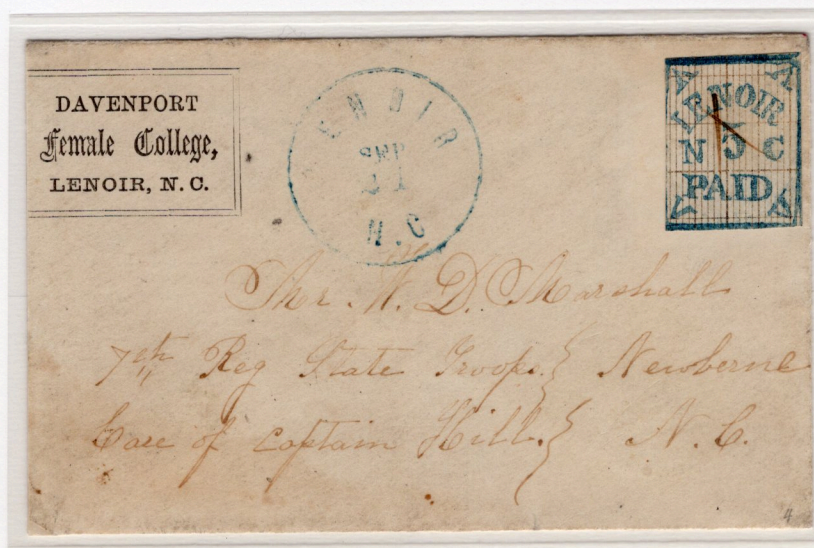 DAVENPORT
Female College,
LENOIR, N. C.
LENOIR
SEP
21
N.C
LENOIR
N 5 C
PAID
Mr. W. D. Marshall
7th Reg State Troops. Newberne
Care of Captain Hill. N. C.
4